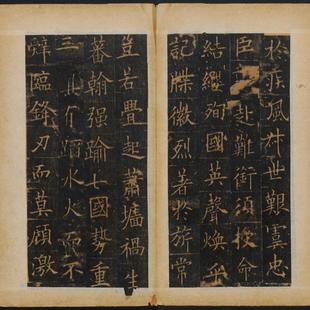 於疾風叔世艱虞忠
臣赴難銜須授命
結纓殉國英聲煥乎
記牒徽烈著於旂常
豈若舋起蕭墻禍生
蕃翰强踰七國勢重
三其蹈水火而不
辭臨鋒刃而莫顧激